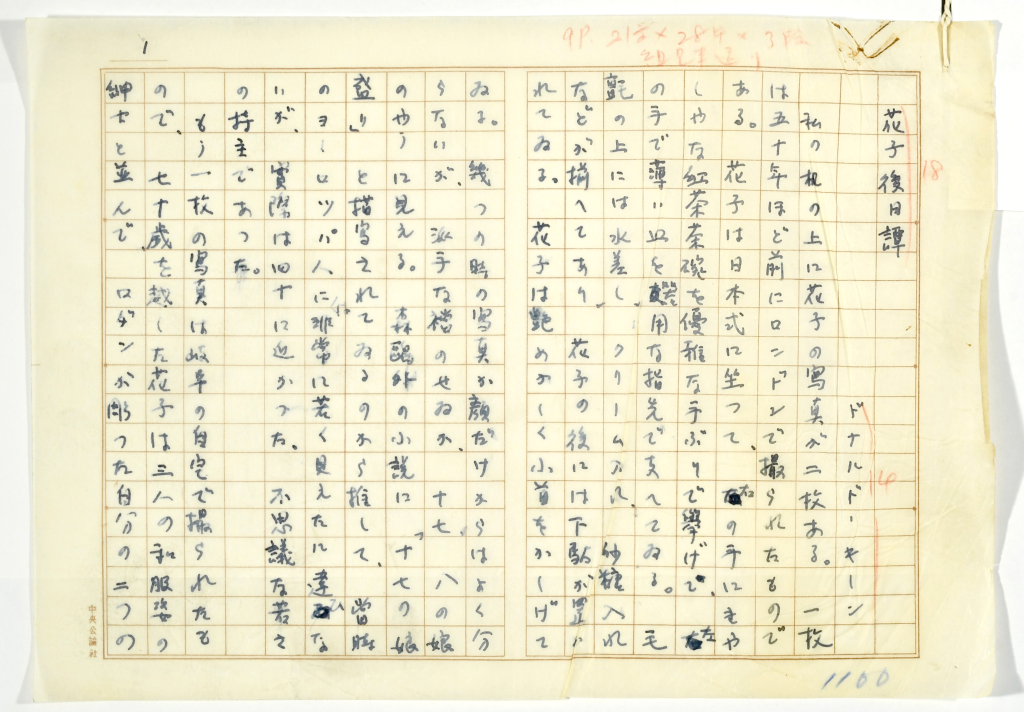 1
9P. 21字×28行×3段
18
花子後日譚
14
ドナルド・キーン
私の机の上に花子の写真が二枚ある。一枚
は五十年ほど前にロンドンで撮られたもので
ある。花子は日本式に坐つて、右の手にきや
しやな紅茶茶碗を優雅な手ぶりで擧げて、左
の手で薄い皿を器用な指先で支へてゐる。毛
氈の上には水差し、クリーム入れ、砂糖入れ
などが揃へてあり、花子の後には下駄が置か
れてゐる。花子は艶めかしく小首をかしげて
ゐる。幾つの時の写真か顔だけからはよく分
らないが、派手な襠のせゐか、十七、八の娘
のやうに見える。森鷗外の小説に「十七の娘
盛り」と描写されてゐるのから推して、當時
のヨーロツパ人に非常に若く見えたに違ひな
いが、實際は四十に近かつた。不思議な若さ
の持主であつた。
もう一枚の寫真は岐阜の自宅で撮られたも
ので、七十歳を越した花子は三人の和服姿の
紳士と並んで、ロダンが彫つた自分の二つの
中央公論社
1100